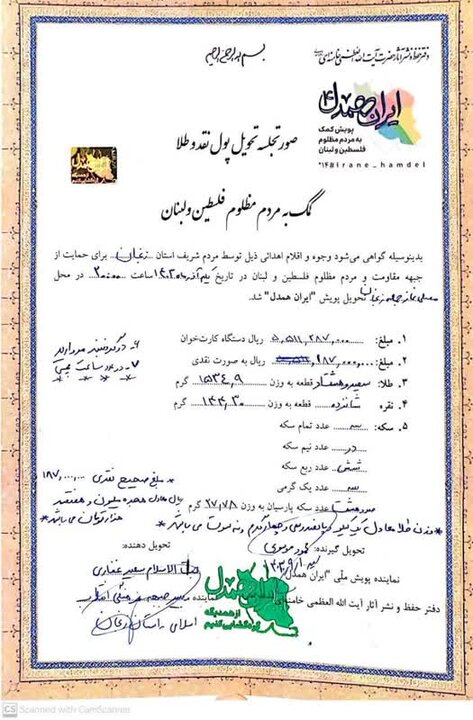 بسم الله الرحمن الرحیم
دفتر حفظ و نشر آثار حضرت آیت الله العظمی خامنه‌ای
ایران همدل
پویش کمک
به مردم مظلوم
فلسطین و لبنان
*۱۴#irane_hamdel
صورتجلسه تحویل پول نقد و طلا
کمک به مردم مظلوم فلسطین و لبنان
بدینوسیله گواهی می‌شود وجوه و اقلام اهدائی ذیل توسط مردم شریف استان زنجان برای حمایت از
جبهه مقاومت و مردم مظلوم فلسطین و لبنان در تاریخ یکم آذر ۱۴۰۳ ساعت ۲۰:۰۰ در محل
مصلی نماز جمعه زنجان تحویل پویش "ایران همدل" شد.
۱. مبلغ: ۵,۵۱۱,۲۸۷,۰۰۰ ریال دستگاه کارت‌خوان
۲. مبلغ: ۱۸۷,۰۰۰,۰۰۰ ریال به صورت نقدی
۶- دو گردنبند مروارید
۳. طلا: سیصد و هشتاد قطعه به وزن ۱۵۳۴,۹ گرم
۷- دو عدد ساعت مچی
۴. نقره: شانزده قطعه به وزن ۱۴۴,۳۰ گرم
۵. سکه: سه عدد تمام سکه
دو عدد نیم سکه
شش عدد ربع سکه
سه عدد یک گرمی
عدد سکه پارسیان به وزن ۲۷,۷۸ گرم
* مبلغ صحیح نقدی ۱۸۷,۰۰۰,۰۰۰
ریال معادل هجده میلیون و هفتصد
هزار تومان می باشد *
* وزن طلا معادل یک کیلو و پانصد و سی و چهار گرم و نه صوت می باشد *
تحویل گیرنده: محمود موسوی
تحویل دهنده:
نماینده پویش ملی "ایران همدل"
حجت الاسلام سعید غفاری
دفتر حفظ و نشر آثار آیت الله العظمی خامنه‌ای
نماینده
انقلاب
اسلامی در استان زنجان
ایران همدل
از همدیگه
گره گشایی کنیم
CS Scanned with CamScanner